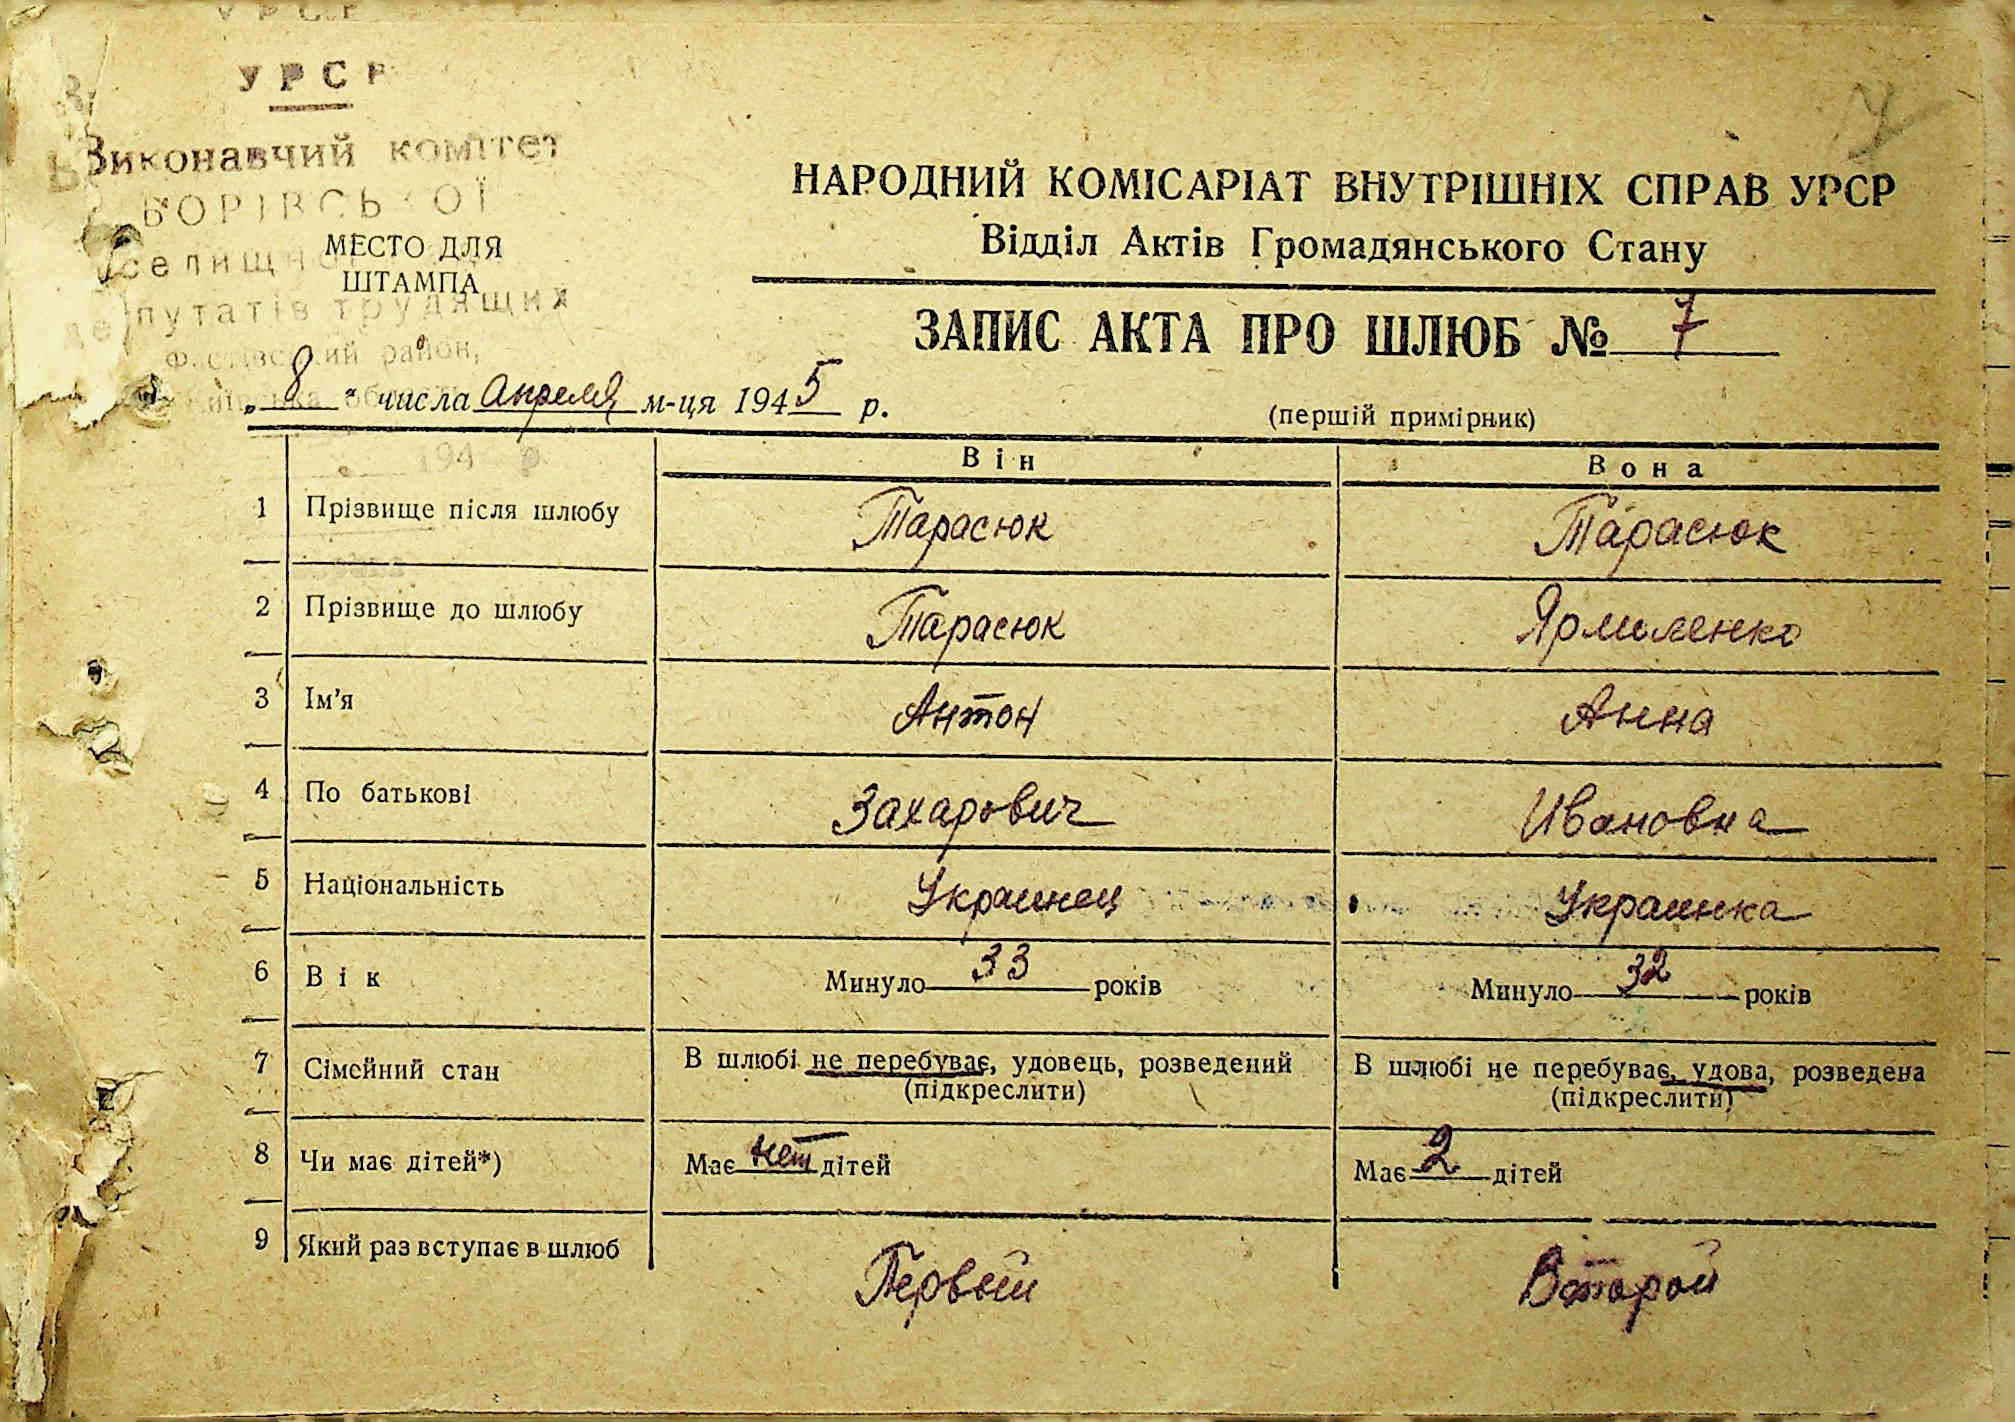 УРСР
УРСР
Виконавчий комітет
БОРІВСЬКОЇ
селищної
депутатів трудящих
Фастівський район,
Київська область
194 р
МЕСТО ДЛЯ
ШТАМПА
НАРОДНИЙ КОМІСАРІАТ ВНУТРІШНІХ СПРАВ УРСР
Відділ Актів Громадянського Стану
ЗАПИС АКТА ПРО ШЛЮБ № 7
„ 8 “ числа апреля м-ця 1945 р.
(першій примірник)
Він Вона
1 Прізвище після шлюбу Тарасюк Тарасюк
2 Прізвище до шлюбу Тарасюк Ярмиленко
3 Ім'я Антон Анна
4 По батькові Захарович Ивановна
5 Національність Украинец Украинка
6 Вік Минуло 33 років Минуло 32 років
7 Сімейний стан В шлюбі не перебуває, удовець, розведений В шлюбі не перебуває, удова, розведена
(підкреслити) (підкреслити)
8 Чи має дітей*) Має нет дітей Має 2 дітей
9 Який раз вступає в шлюб Первый Второй